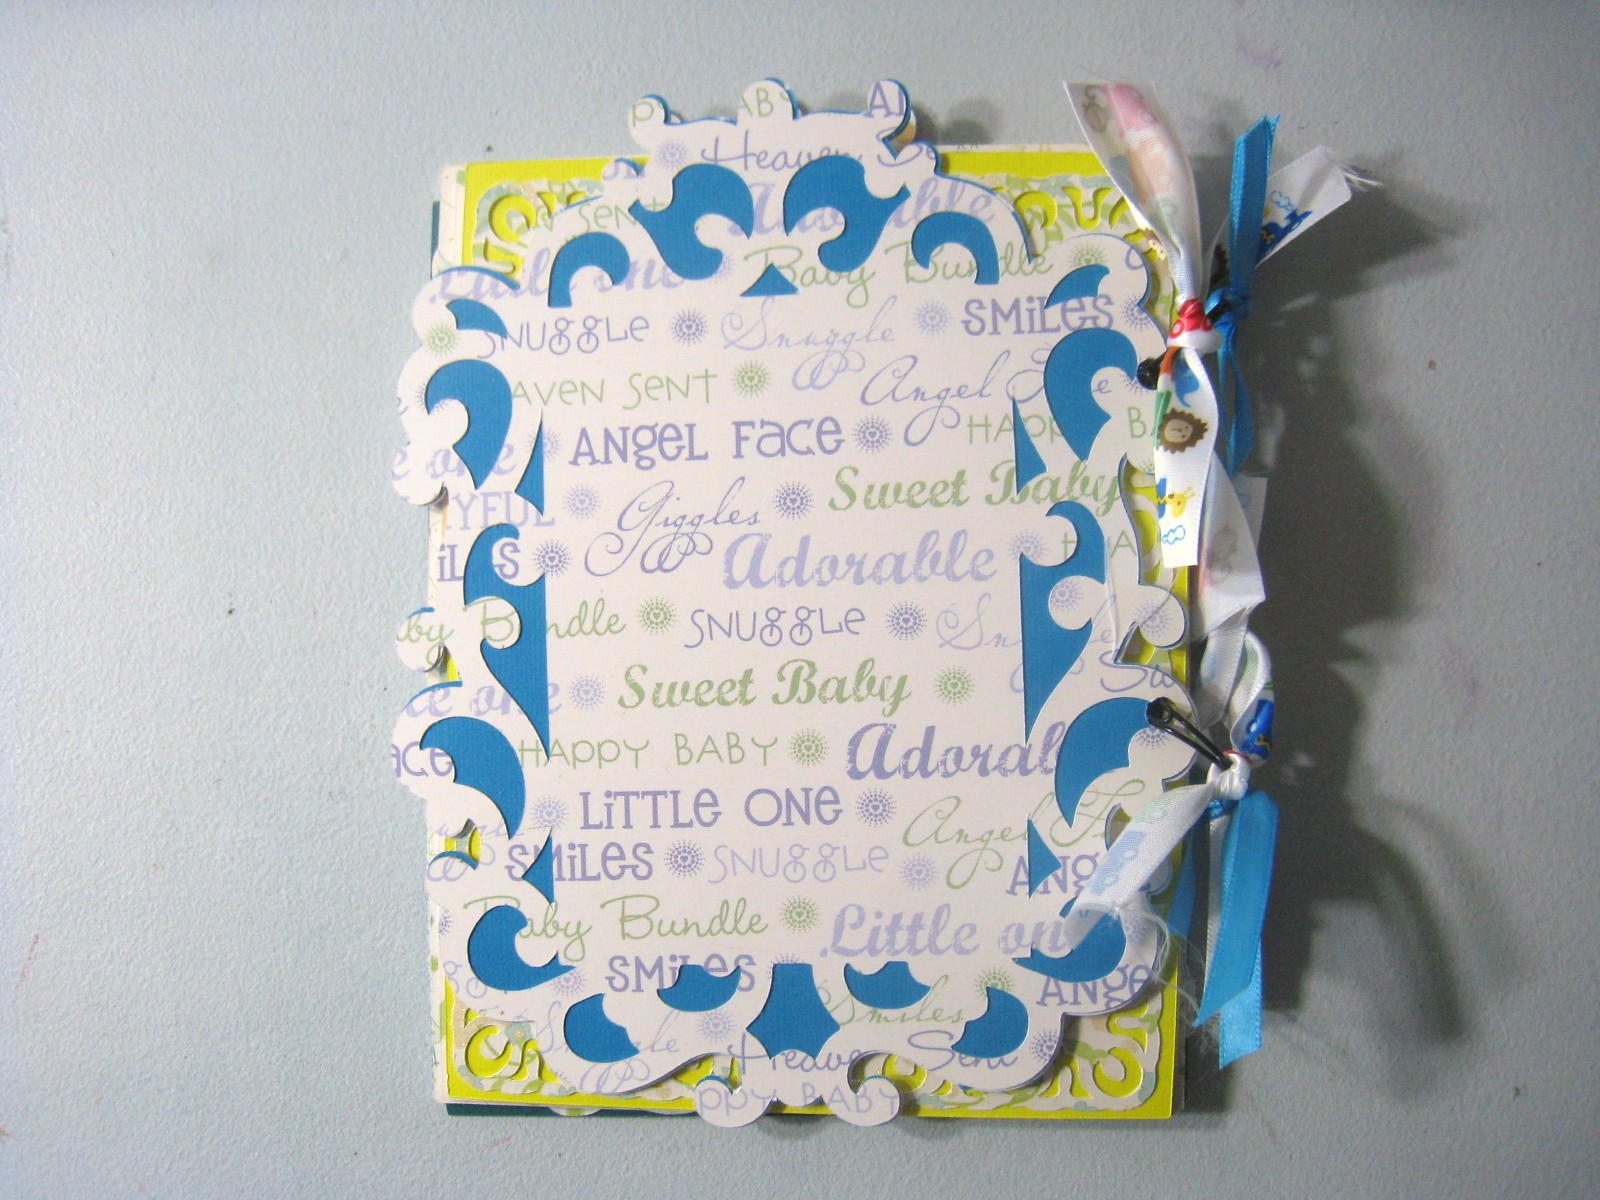 BABY
Heaven Se
Sent Adorable
Little one Baby Bundle
SNUGGLE Snuggle SMiLES
AVEN SENT Angel
ANGEL FACE HAPP BA
e one Sweet Baby
YFUL Giggles
iLES Adorable HEA
by Bundle SNUGGLE Snuggle
Sweet Baby
ce one
HAPPY BABY Adorabl
ace LiTTLE ONE
Angel Fa
SMiLES SNUGGLE ANG
Baby Bundle Little one
SMiLES ANGE
Smiles
Heaven Sent
PPY BABY